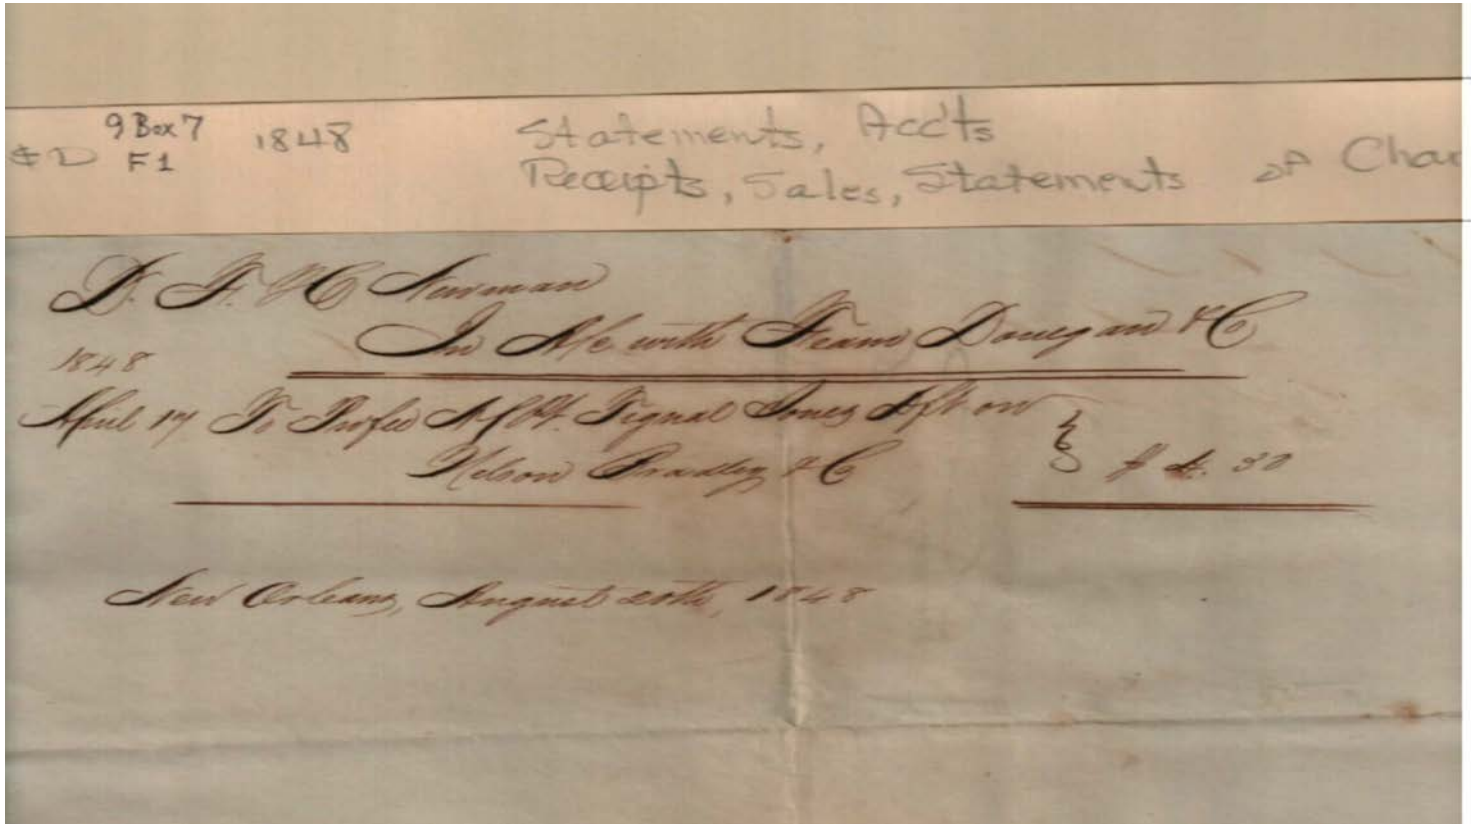 9 Box 7 1848 Statements, Acc'ts
& D F1 Receipts, Sales, Statements of Char
D. F. & C Newman
In A/c with Fearn Donegan & C
1848
April 17 To Tignal Jones dft on
Nelson Bradley & C
New Orleans, August 20th, 1848